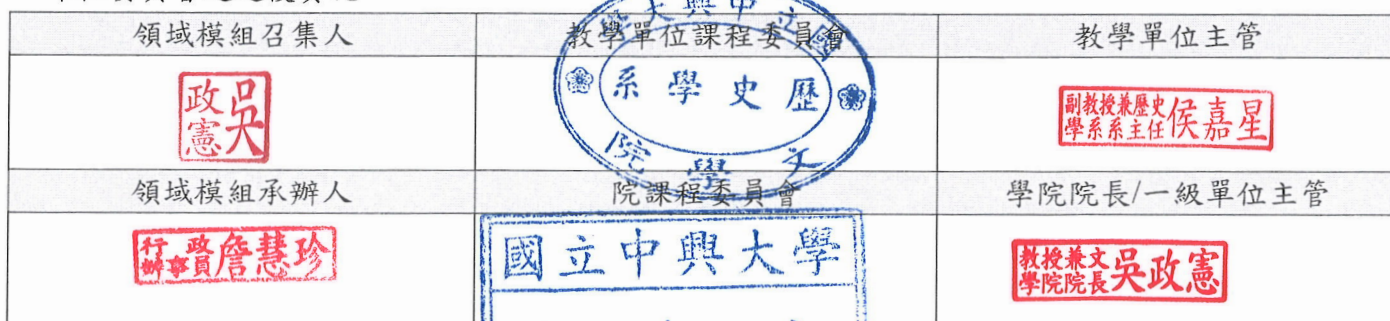 領域模組召集人 教學單位課程委員會 教學單位主管
吳政憲
國立中興大學
歷史學系
文學院
副教授兼歷史學系系主任 侯嘉星
領域模組承辦人 院課程委員會 學院院長/一級單位主管
行政辦事員 詹慧珍
國立中興大學
教授兼文學院院長 吳政憲